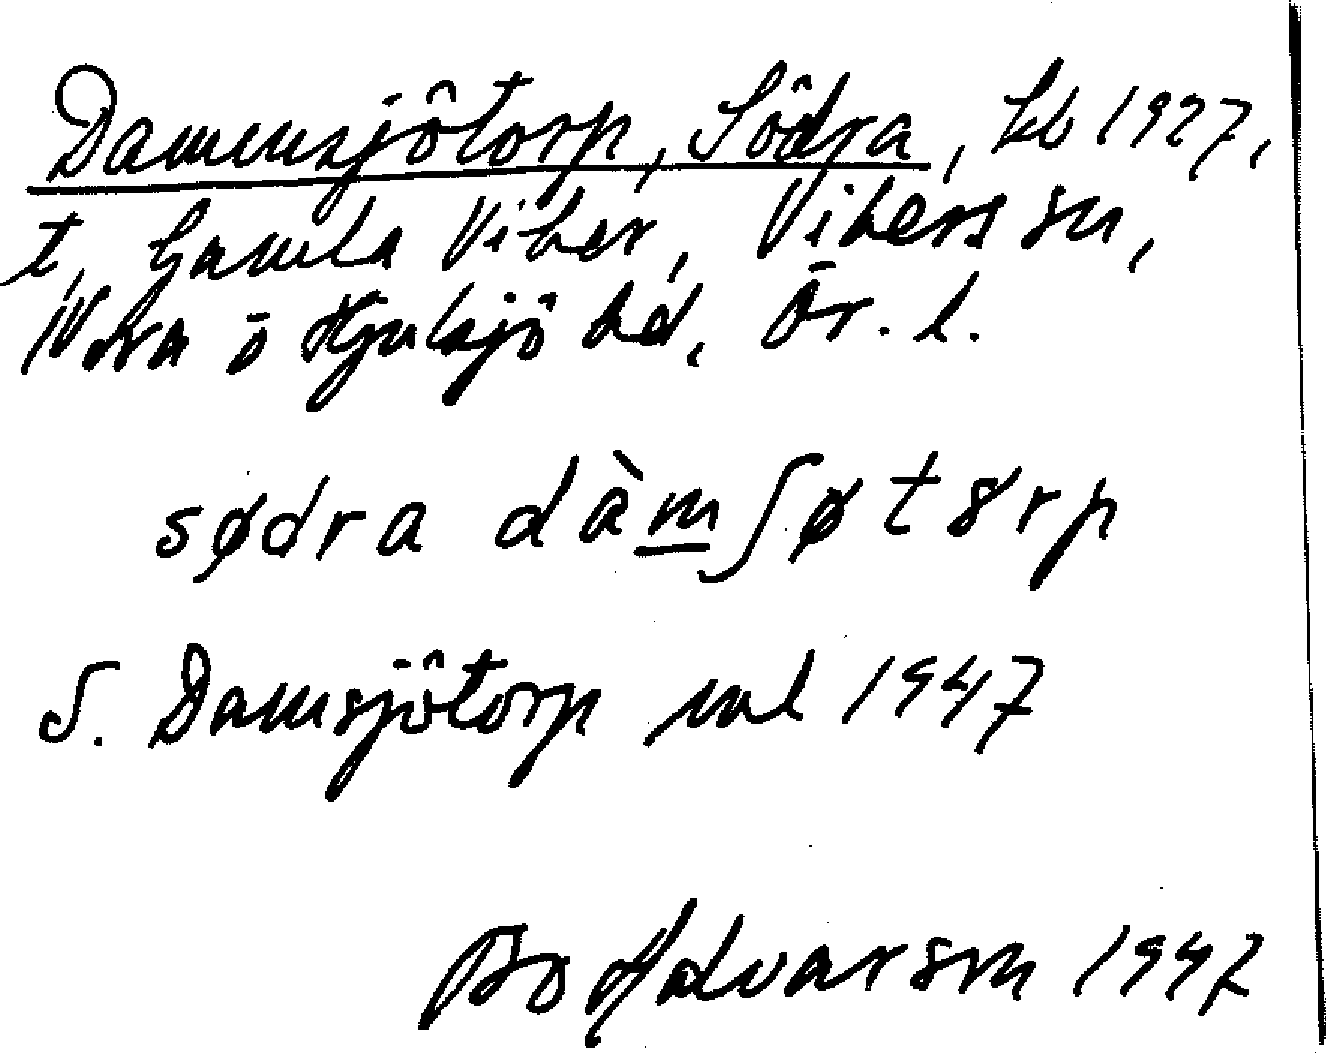 Dammsjötorp, Södra, kb 1927,
t, Gamla Viker, Vikers sn,
Nora o Hjulsjö hd, Ör. l.
sødra dàmʃøtɵrp
S. Damsjötorp ml 1947
Bo Advarson 1947